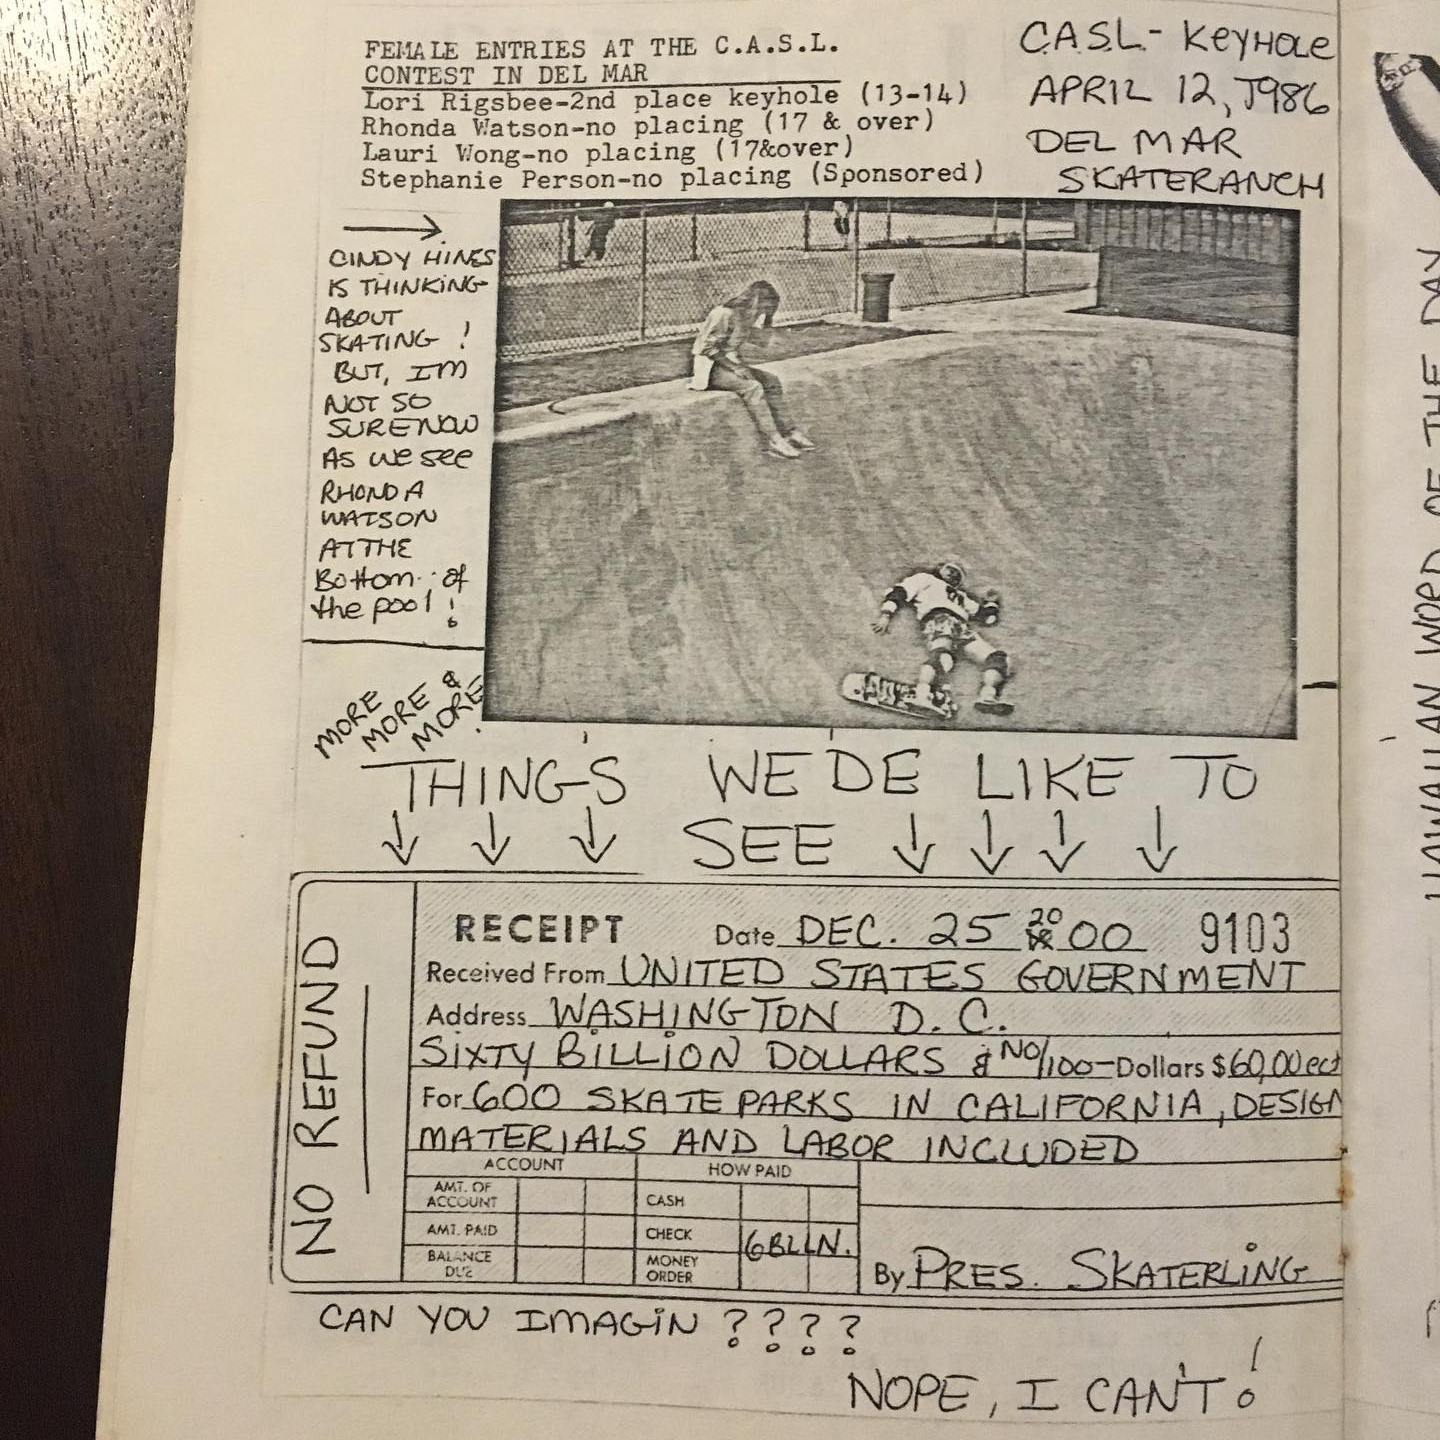 FEMALE ENTRIES AT THE C.A.S.L.
CONTEST IN DEL MAR
Lori Rigsbee-2nd place keyhole (13-14)
Rhonda Watson-no placing (17 & over)
Lauri Wong-no placing (17&over)
Stephanie Person-no placing (Sponsored)
C.A.S.L.- KEYHOLE
APRIL 12, 1986
DEL MAR
SKATERANCH
CINDY HINES
IS THINKING
ABOUT
SKATING !
BUT, I'M
NOT SO
SURE NOW
AS WE SEE
RHONDA
WATSON
AT THE
BOTTOM OF
the pool!
MORE
MORE &
MORE
THING'S WE'DE LIKE TO
SEE
NO REFUND
RECEIPT Date DEC. 25 20 00 9103
Received From UNITED STATES GOVERNMENT
Address WASHINGTON D.C.
SIXTY BILLION DOLLARS & NO/100-Dollars $60,00 ect
For 600 SKATE PARKS IN CALIFORNIA, DESIGN
MATERIALS AND LABOR INCLUDED
ACCOUNT HOW PAID
AMT. OF ACCOUNT CASH
AMT. PAID CHECK 6BLLN.
BALANCE DUE MONEY ORDER
By PRES. SKATERLING
CAN YOU IMAGIN ????
NOPE, I CAN'T!
HAWAIIAN WORD OF THE DAY